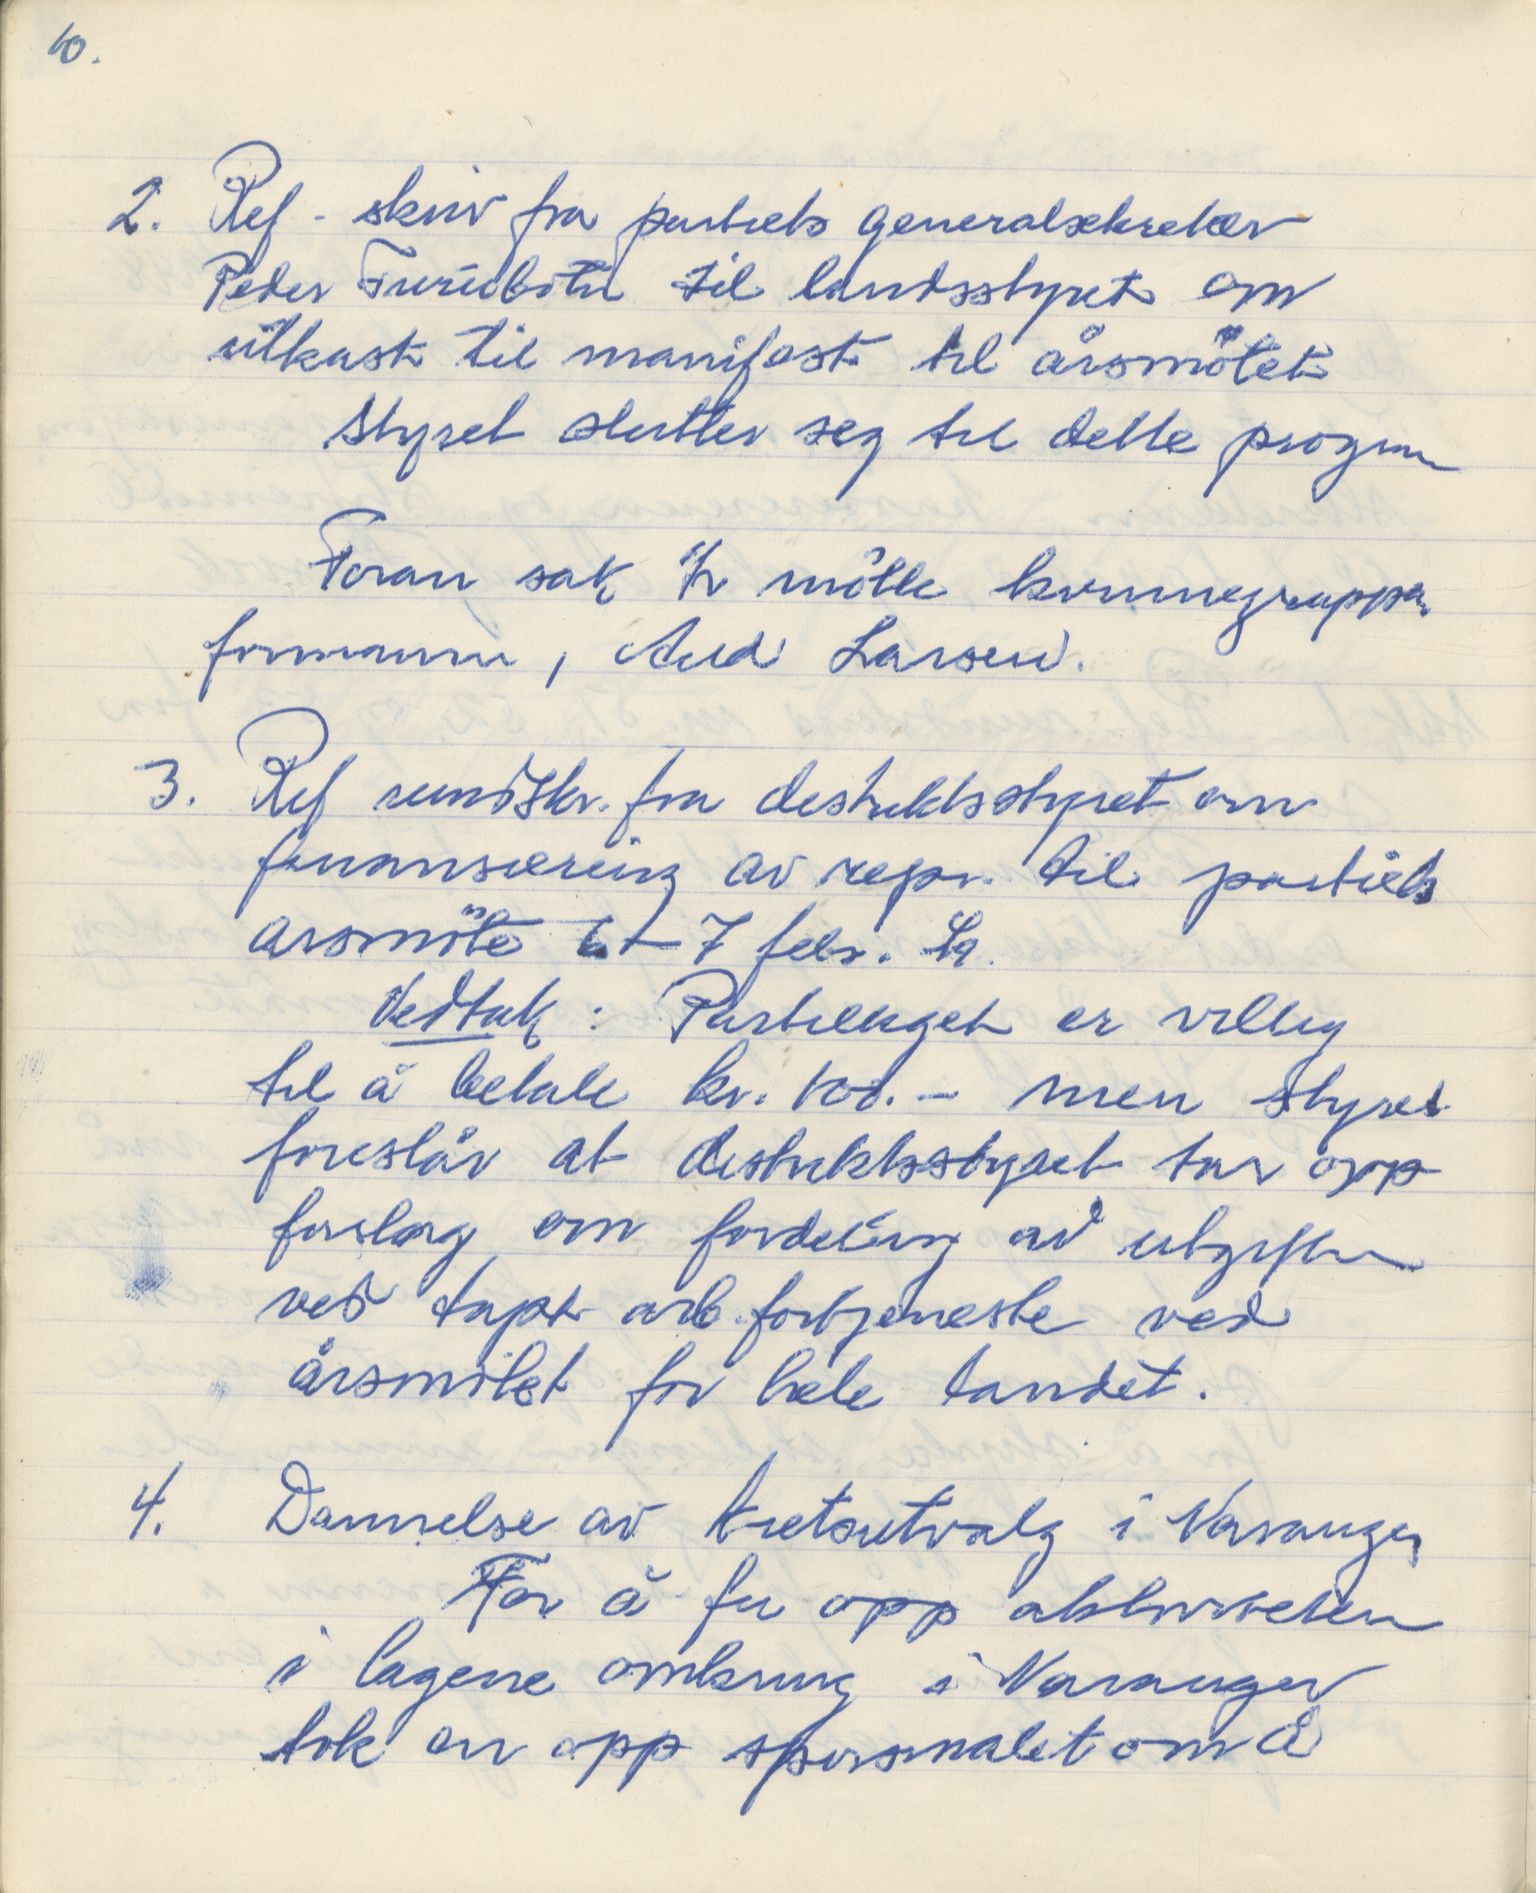 10.
2. Ref - skriv fra partiets generalsekretær
Peder Furubotn til landsstyret om
utkast til manifest til årsmötet
Styret slutter seg til dette program
Foran sak 2 mötte kvinnegruppas
formann, Aud Larsen.
3. Ref rundskr. fra destriktsstyret om
finansiering av repr. til partiets
årsmöte 6-7 febr.
Vedtak: Partilaget er villig
til å betale kr. 100.- men styret
foreslår at destriktsstyret tar opp
forslag om fordeling av utgiften
ved tapt arb.fortjeneste ved
årsmötet for hele landet.
4. Dannelse av Kretsutvalg i Varanger
For å få opp aktiviteten
i lagene omkring i Varanger
tok en opp spørsmålet om å